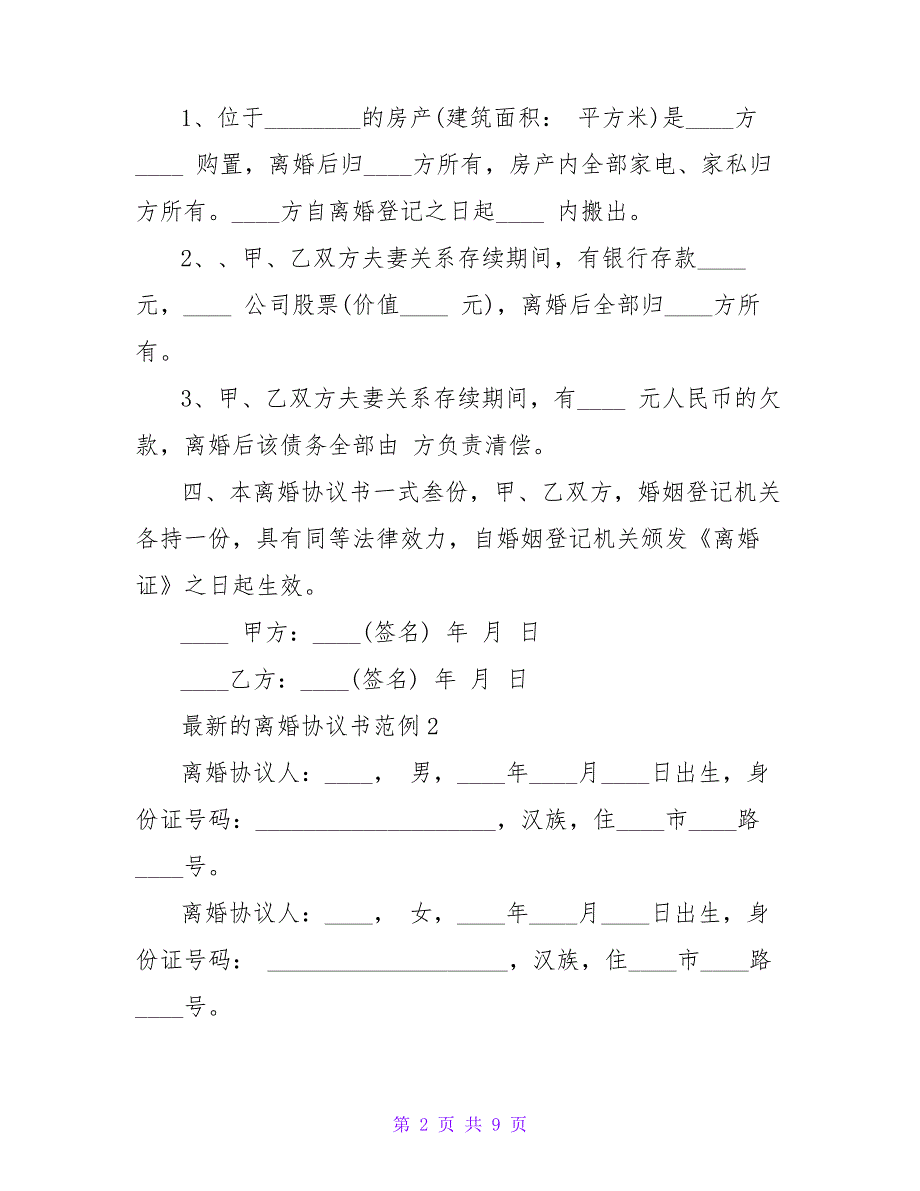 1、位于________的房产(建筑面积： 平方米)是____方
____ 购置，离婚后归____方所有，房产内全部家电、家私归
方所有。____方自离婚登记之日起____ 内搬出。
2、、甲、乙双方夫妻关系存续期间，有银行存款____
元，____ 公司股票(价值____ 元)，离婚后全部归____方所
有。
3、甲、乙双方夫妻关系存续期间，有____ 元人民币的欠
款，离婚后该债务全部由 方负责清偿。
四、本离婚协议书一式叁份，甲、乙双方，婚姻登记机关
各持一份，具有同等法律效力，自婚姻登记机关颁发《离婚
证》之日起生效。
____ 甲方：____(签名) 年 月 日
____乙方：____(签名) 年 月 日
最新的离婚协议书范例2
离婚协议人：____， 男，____年____月____日出生，身
份证号码：____________________，汉族，住____市____路
____号。
离婚协议人：____， 女，____年____月____日出生，身
份证号码： ____________________，汉族，住____市____路
____号。
第 2 页 共 9 页